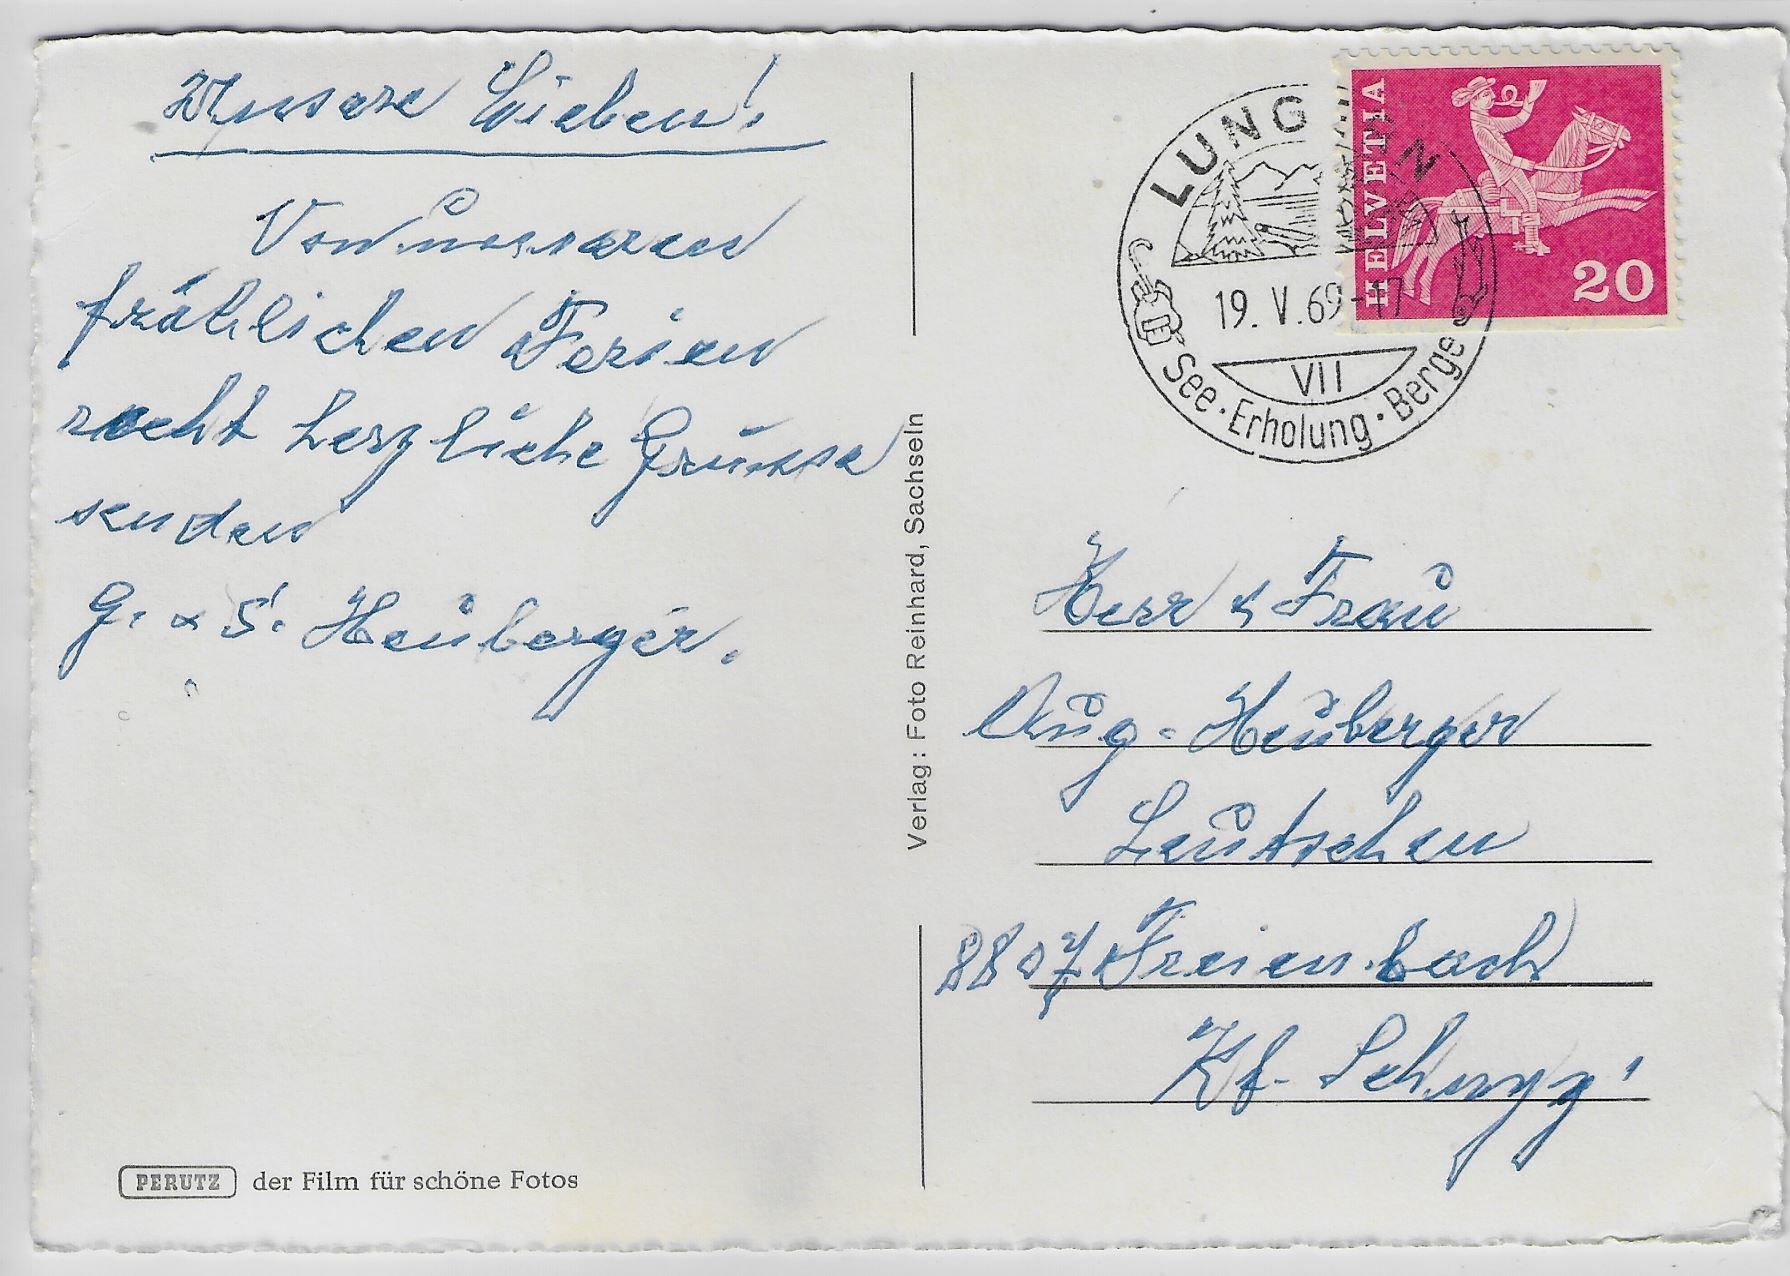 Unsere Lieben!
Von unseren
fröhlichen Ferien
recht herzliche Grüsse
senden
G. & S. Heuberger.
PERUTZ der Film für schöne Fotos
Verlag: Foto Reinhard, Sachseln
LUNGERN
19. V. 69-17
VII
See · Erholung · Berge
HELVETIA
20
Herr & Frau
Aug. Heuberger
Leutschen
8807 Freienbach
Kt. Schwyz